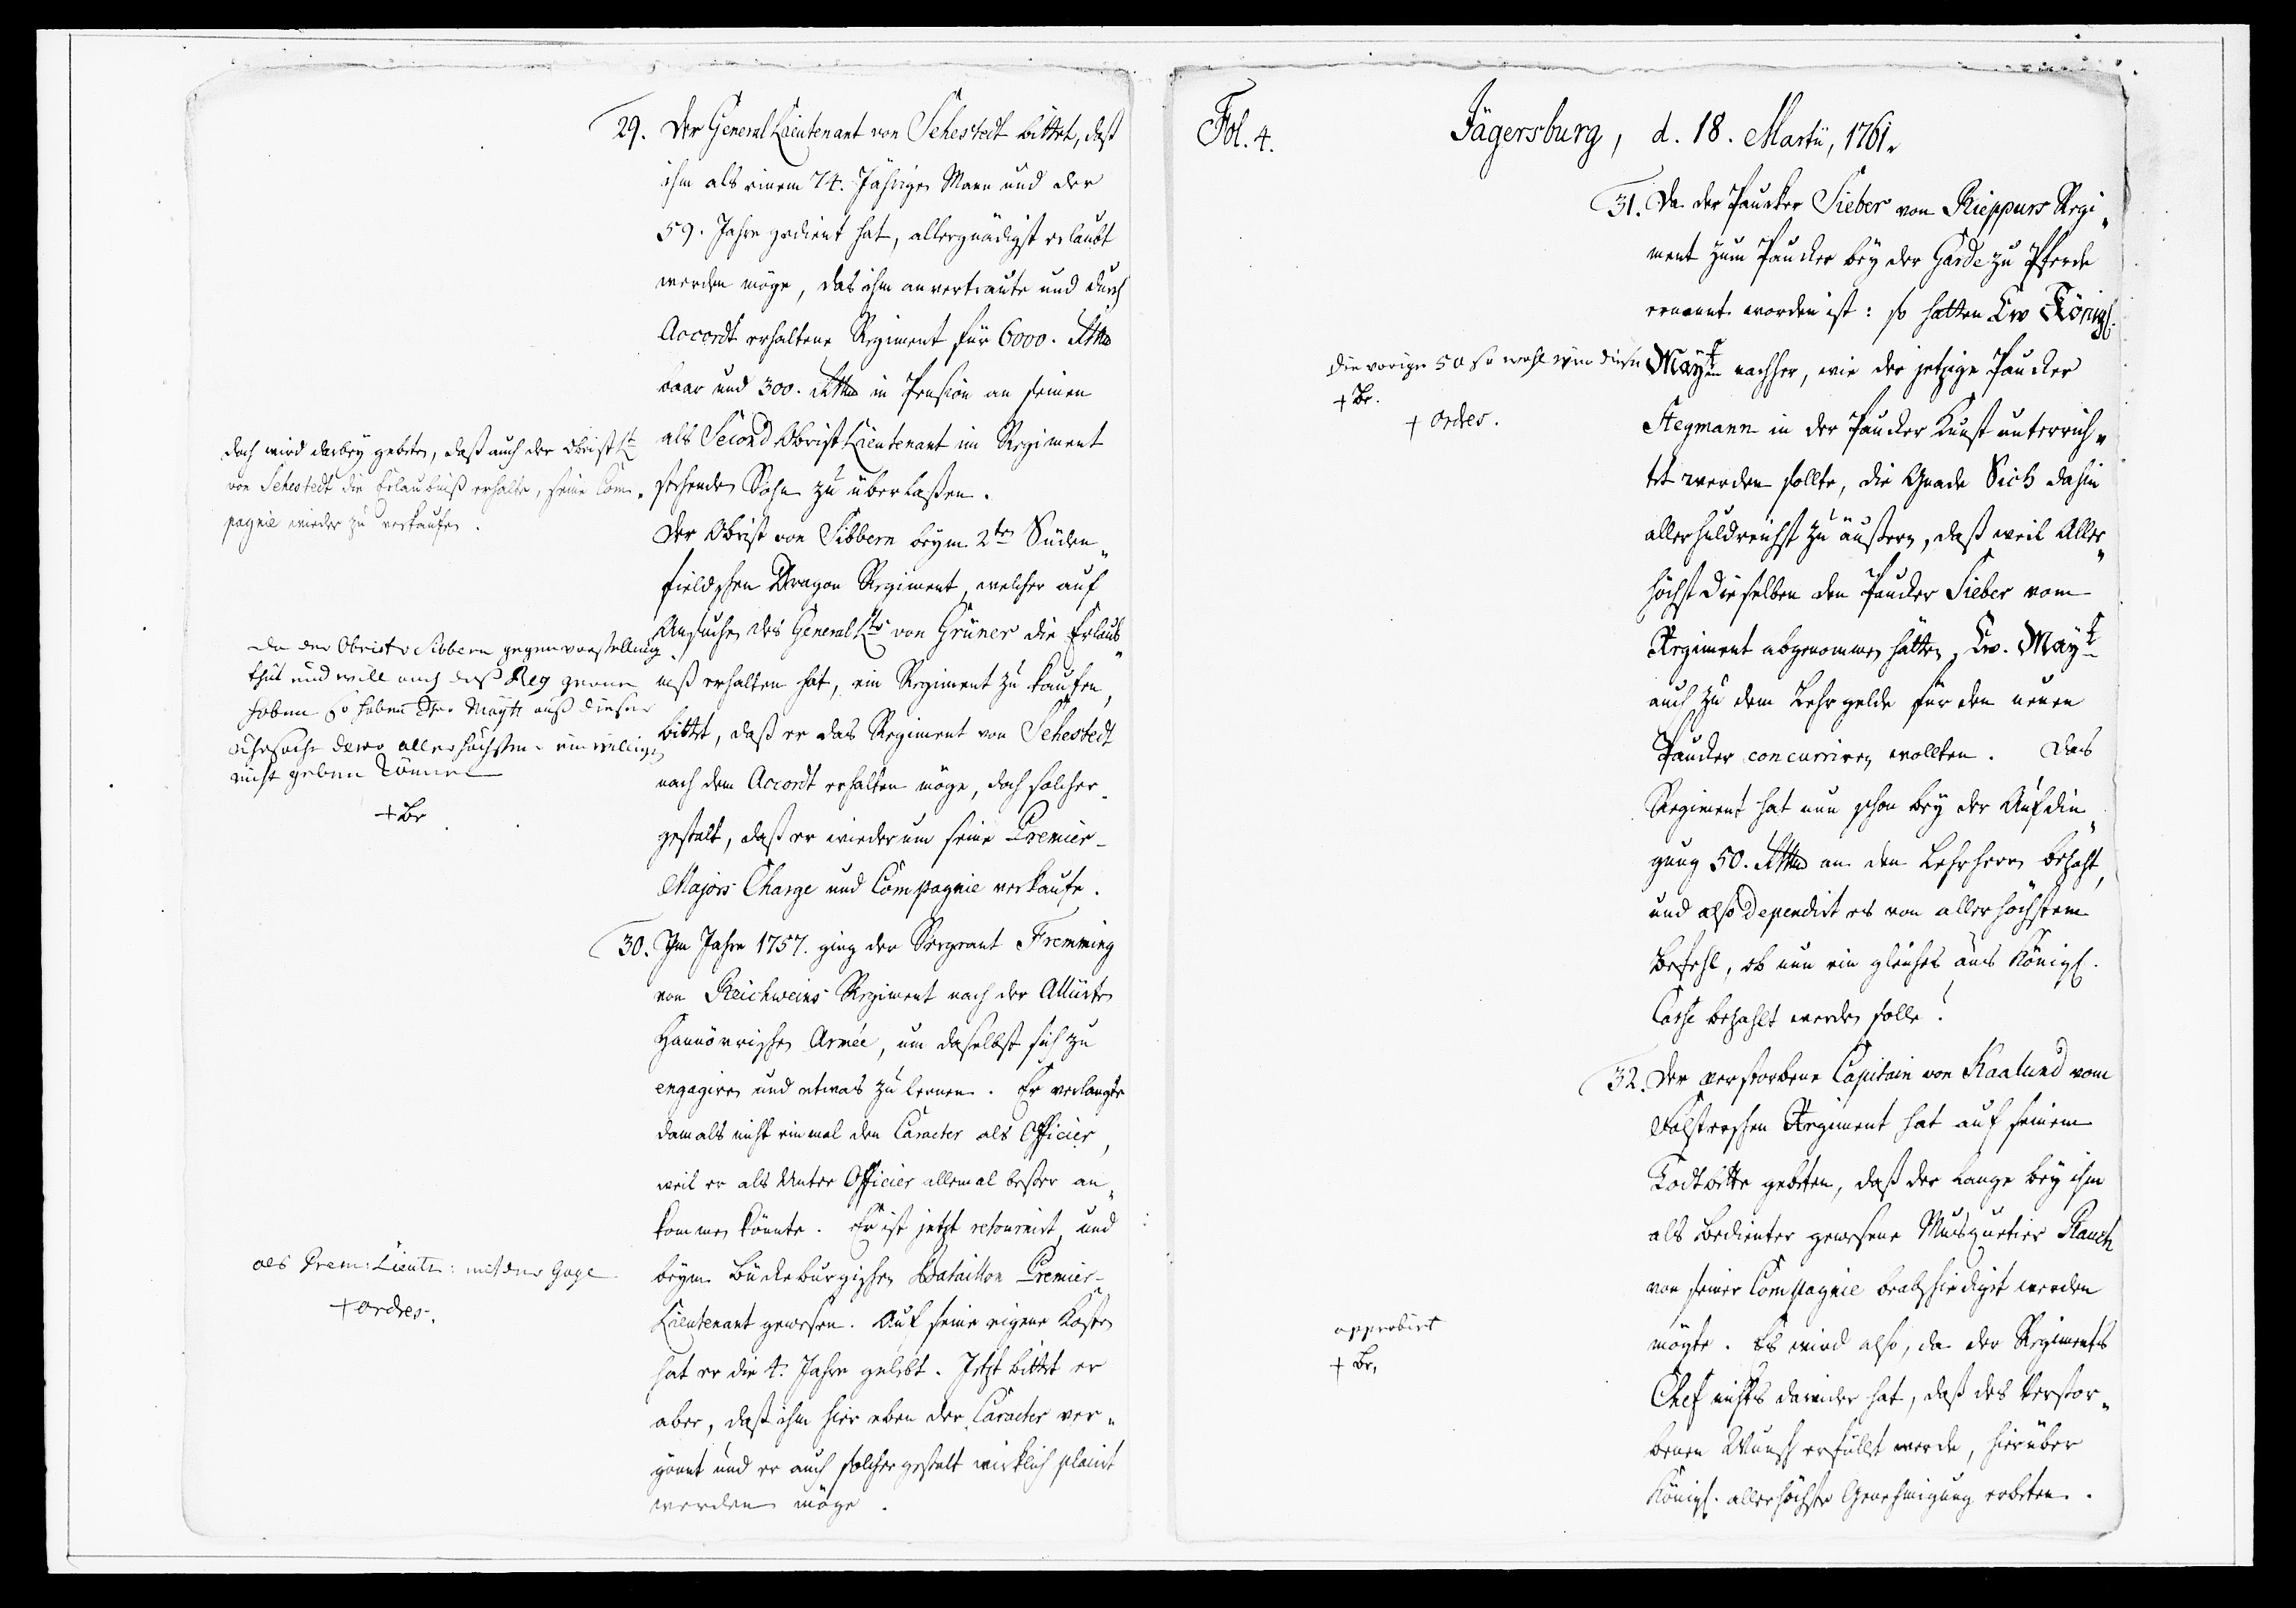 29. Der General Lieutenant von Sehestedt bittet, daß
ihm als einem 74. Jährigen Mann und der
59. Jahre gedient hat, allergnädigst erlaubt
werden möge, das ihm anvertraute und durch
Accordt erhaltene Regiment für 6000. Rthlr
baar und 300. Rthlr in Pension an seinen
als Second Obrist Lieutenant im Regiment
stehenden Sohn zu überlaßen.
doch wird darbey gebeten, daß auch der Obrist Lt
von Sehestedt die Erlaubniß erhalte, seine Com-
pagnie wieder zu verkaufen.
Der Obrist von Sibbern beym 2ten Süden„
fieldschen Dragon Regiment, welcher auf
Ansuchen des General Lts von Grüner die Erlaub„
niß erhalten hat, ein Regiment zu kaufen,
bittet, daß er das Regiment von Sehestedt
nach dem Accordt erhalten möge, doch solcher„
gestalt, daß er wiederum seine Premier-
Majors Charge und Compagnie verkaufe.
da der Obrist v Sibbern gegenvorstellung
thut und will auch das Reg gerne
haben so haben Ihr Maytt auß dieser
uhrsache dero allerhöchsten einwilligen
nicht geben können
+ Br
30. Im Jahre 1757. ging der Sergeant Fremming
von Reichweins Regiment nach der Alliirten
Hannövrischen Armée, um daselbst sich zu
engagiren und etwas zu lernen. Er verlangte
damals nicht einmal den Caracter als Officier,
weil er als Unter Officier allemal beßer an„
kommen könnte. Er ist jetzt retournirt, und
beym Bückeburgischen Bataillon Premier-
Lieutenant gewesen. Auf seine eigene Kosten
hat er die 4. Jahre gelebt. Jetzt bittet er
aber, daß ihm hier eben der Caracter ver„
gönnt und er auch solchergestalt wirklich placirt
werden möge.
als Prem: Lieutn: mit der Gage
+ ordres.
Fol. 4. Jägersburg, d. 18. Martii, 1761.
31. Da der Paucker Sieber von Rieppurs Regi„
ment zum Paucker bey der Garde zu Pferde
ernannt worden ist: so hatten Ew Königl.
Maytt nachher, wie der jetzige Paucker
Stegmann in der Paucker Kunst unterrich„
tet werden sollte, die Gnade Sich dahin
allerhuldreichst zu äußern, daß weil Aller„
höchst dieselben den Paucker Sieber vom
Regiment abgenommen hätten, Ew. Maytt
auch zu dem Lehrgelde für den neuen
Paucker concurriren wollten. Das
Regiment hat nun schon bey der Aufdin„
gung 50. Rthlr an den Lehrherrn bezahlt,
und also dependirt es von allerhöchstem
Befehl, ob nun ein gleiches aus Königl.
Casse bezahlt werden solle!
die vorige 50 so wohl wie diese
+ Br.
+ ordres.
32. Der verstorbene Capitain von Kaalund vom
Falsterschen Regiment hat auf seinem
Todtbette gebeten, daß der lange bey ihm
als Bedienter gewesene Musquetier Rauch
von seiner Compagnie beabschiedigt werden
mögte. Es wird also, da der Regiments
Chef nichts darwider hat, daß des Verstor„
benen Wunsch erfüllt werde, hierüber
Königl. allerhöchste Genehmigung erbeten.
approbirt
+ Br,